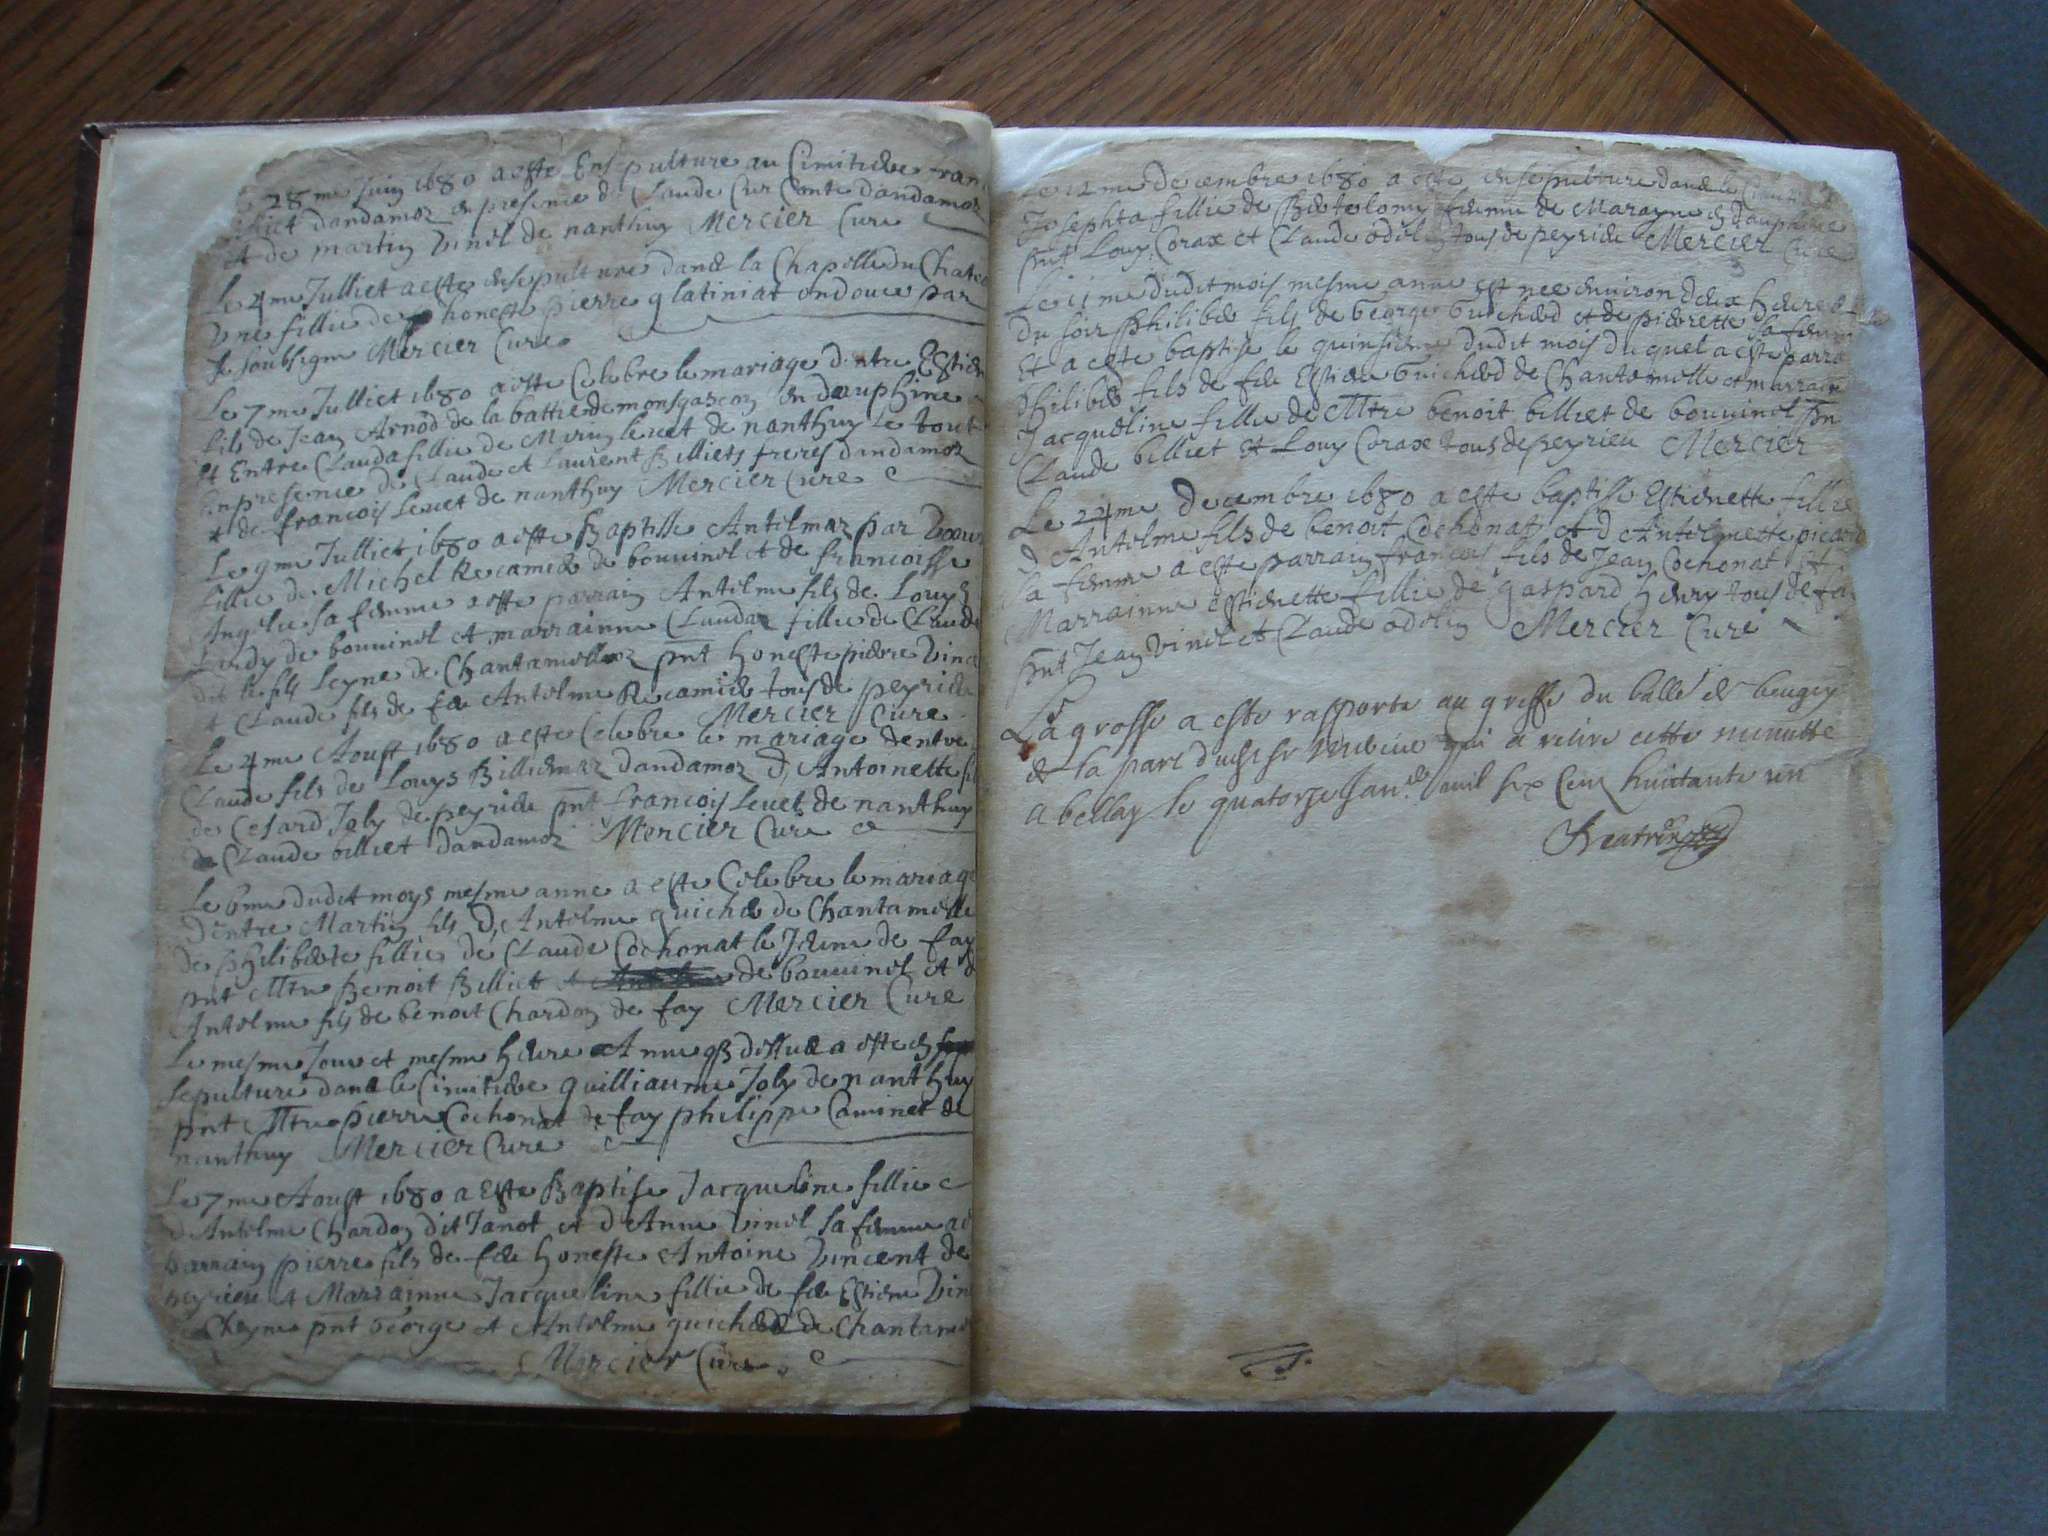 28me Juin 1680 a este Ensepulture au Cimitiere fran
billiet dandamoz en presence de Claude Cur Conte dandamoz
et de martin vinel de nanthuy Mercier Cure
Le 4me Julliet a este ensepulture dans la Chapelle du Chate
vne fillie de honeste pierre glatiniat ondoue par
Je soubsigne Mercier Cure
Le 7me Julliet 1680 a este Celebre le mariage dentre Estien
fils de Jean Arnod de la battie de monsgascon en dauphine
et Entre Clauda fillie de leuet de nanthuy le tout
En presence de Claude et Laurent Billiets freres dandamoz
et de francois Leuet de nanthuy Mercier Cure
Le 9me Julliet 1680 a este Baptisse Antilmaz par
fillie de Michel Recamier de bouuinel et de francoisse
Angelie sa femme a este parrain Antelme fils de Louys
Landy de bouuinel et marrainne Claudaz fillie de Claude
dit le fily Leyne de Chantamellaz pnt honeste pierre vince
et Claude fils de feu Antelme Recamier tous de peyrieu
Mercier Cure
Le 4me Aoust 1680 a este Celebre le mariage dentre
Claude fils de Louys Billiemaz dandamoz d'Antoinette fil
de Cesard Joly de peyrieu pnt francois Leuet de nanthuy
de Claude billiet dandamoz Mercier Cure
Le 6me dudit moys mesme anne a este Celebre le mariage
Dentre Martin fils d'Antelme guicher de Chantamelle
de philiberte fillie de Claude Cochonat le Jeune de fay
pnt Mtre Benoit Billiet de bouuinel et d
Antelme fils de benoit Chardon de fay Mercier Cure
Le mesme Jour et mesme heure Anne que dessus a este en
sepulture dans le Cimitiere guilliaume Joly de nanthuy
pnt Mtre pierre Cochonat de fay philippe Caminet de
nanthuy Mercier Cure
Le 7me Aoust 1680 a Este Baptise Jacqueline fillie
d'Antelme Chardon dit Janot et d'Anne vinel sa femme a e
parrain pierre fils de feu honeste Antoine vincent de
peyrieu et Marrainne Jacqueline fillie de feu Estiene vin
Cheyne pnt George et Antelme guicherd de Chantame
Mercier Cure
Le 12me decembre 1680 a este ensepulture dans le Cimitie
Josephta fillie de Bertelomy femme de en dauphine
pnt Louy Corax et Claude odelin tous de peyrieu Mercier Cure
Le 11me dudit mois mesme anne est nee enuiron deux heures
du soir philiber fils de George Guicherd et de pierrette sa femme
Et a este baptise le quinsieme dudit mois duquel a este parra
philiber fils de feu Estiene Guicherd de Chantemelle et marraine
Jacqueline fillie de Mtre benoit billiet de bouuinel pn
Claude billiet et Louy Corax tous de peyrieu Mercier
Le 24me decembre 1680 a este baptisse Estienette fillie
d'Antelme fils de benoit Cochonat et d'Antelmette picard
sa femme a este parrain francois fils de Jean Cochonat et
Marrainne estienette fillie de gaspard henry tous de fay
pnt Jean vinel et Claude odelin Mercier Cure
La grosse a este rapporte au greffe du balle de beugey
de la part dudt sr Mercier qui a retire cette minutte
a bellay le quatorze Janer mil six Cens huictante un